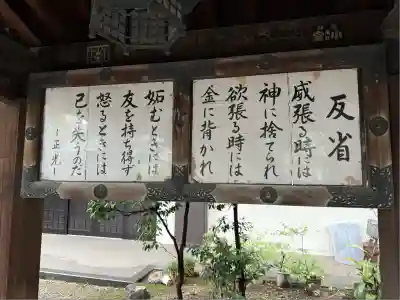 反省
威張る時には
神に捨てられ
欲張る時には
金に背かれ
妬むときには
友を持ち得ず
怒るときには
己を失うのだ
－正光－